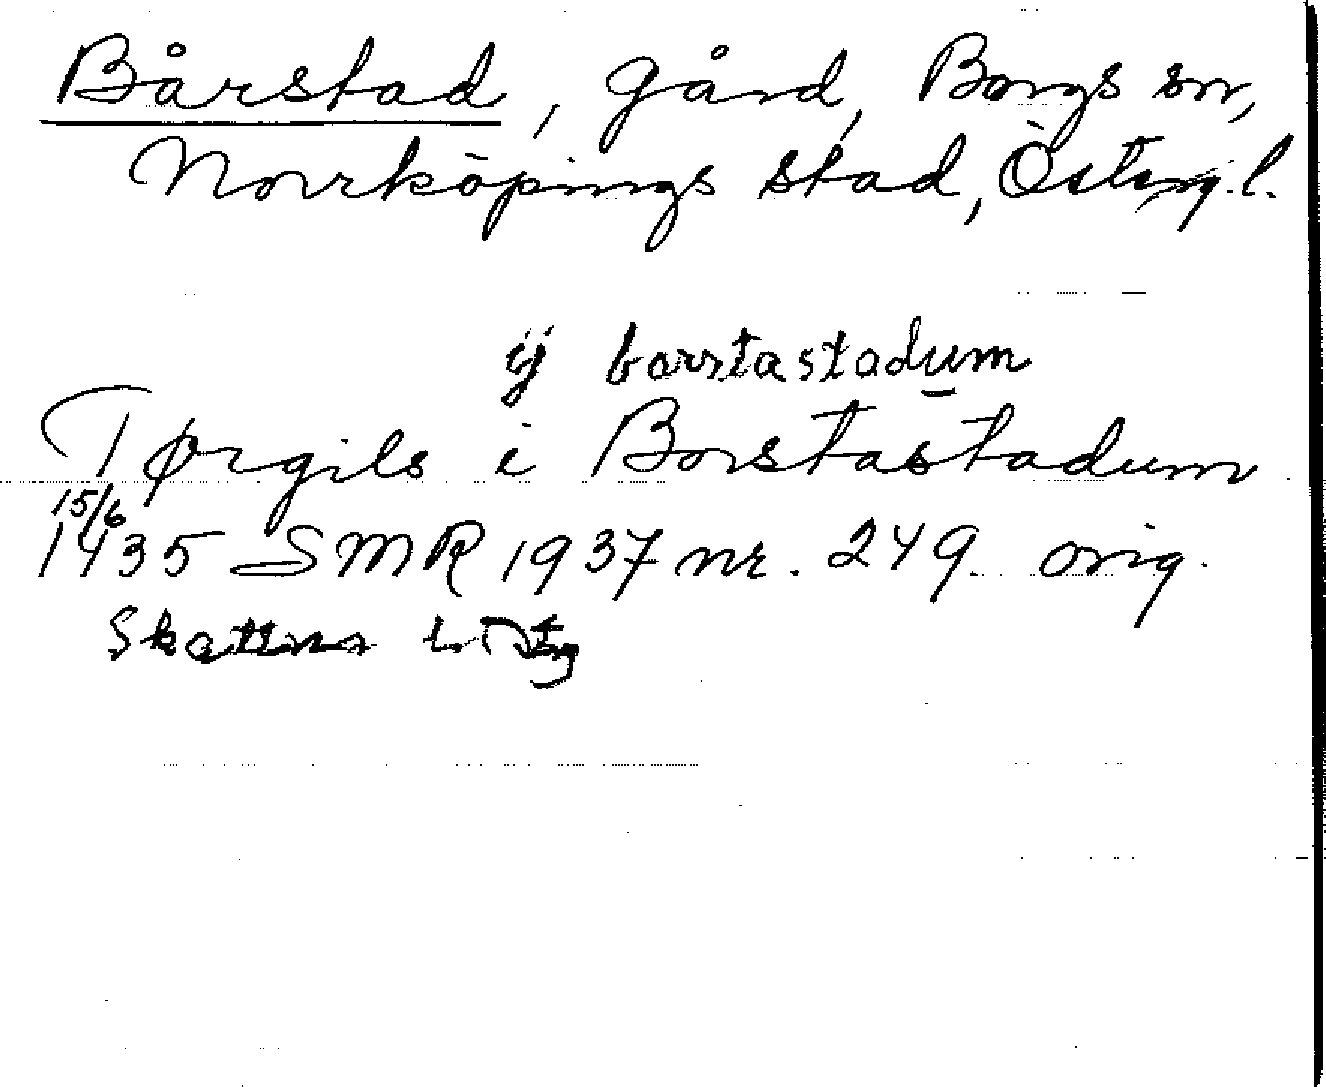 Bårstad, gård, Borgs sn,
Norrköpings stad, Österg. l.
ÿ borstastadum
Tørgils i Borstastadum
15/6
1435 SMR 1937 nr. 249 orig.